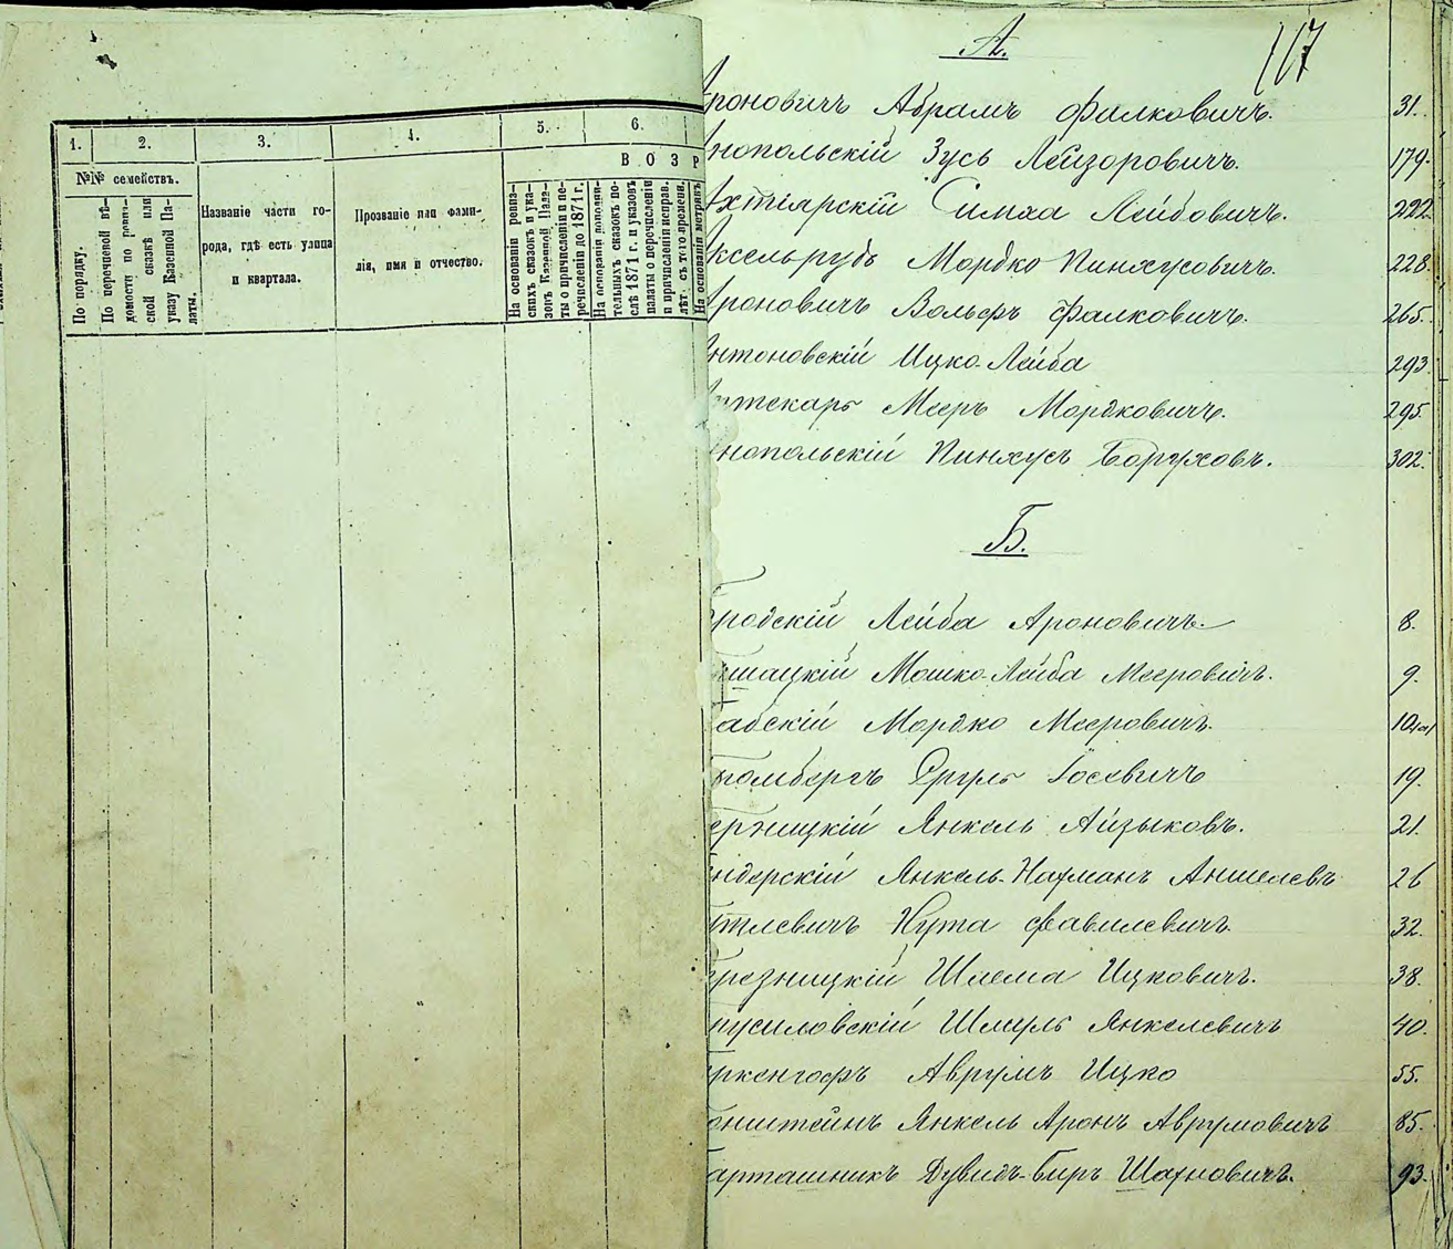 1. 2. 3. 4. 5. 6.
ВОЗР
№№ семействъ.
По порядку.
По перечневой вѣ-
домости по ревиз-
ской сказкѣ или
указу Казенной Па-
латы.
Названіе части го-
рода, гдѣ есть улица
и квартала.
Прозваніе или фами-
лія, имя и отчество.
На основаніи ревиз-
скихъ сказокъ и ука-
зовъ Казенной Пала-
ты о причисленіи и пе-
речисленіи до 1871 г.
На основаніи дополни-
тельныхъ сказокъ по-
слѣ 1871 г. и указовъ
палаты о перечисленіи
и причисленіи исправ.
лѣт. съ того времени.
На основаніи метрикъ
117
А.
Ароновичъ Абрамъ Фалковичъ. 31.
Анопольскій Зусь Лейзоровичъ. 179.
Ахтіярскій Симха Лейбовичъ. 222
Аксельрудъ Мордко Пинхусовичъ. 228.
Ароновичъ Вольфъ Фалковичъ. 265.
Антоновскій Ицко-Лейба 293.
Аптекарь Мееръ Мордковичъ. 295.
Анопольскій Пинхусъ Боруховъ. 302.
Б.
Бродскій Лейба Ароновичъ. 8.
шацкій Мошко-Лейба Мееровичъ. 9.
абскій Мордко Мееровичъ. 10
ромбергъ Сруль Іосевичъ 19.
ерницкій Янкель Айзыковъ. 21.
ндерскій Янкель-Нахманъ Аншелевъ 26
тлевичъ Нута Фавилевичъ. 32.
резницкій Шлема Ицковичъ. 38.
русиловскій Шмуль Янкелевичъ 40.
ркенгофъ Аврумъ Ицко 55.
онштейнъ Янкель Аронъ Аврумовичъ 85.
арташникъ Дувидъ-Беръ Шахновичъ. 93.